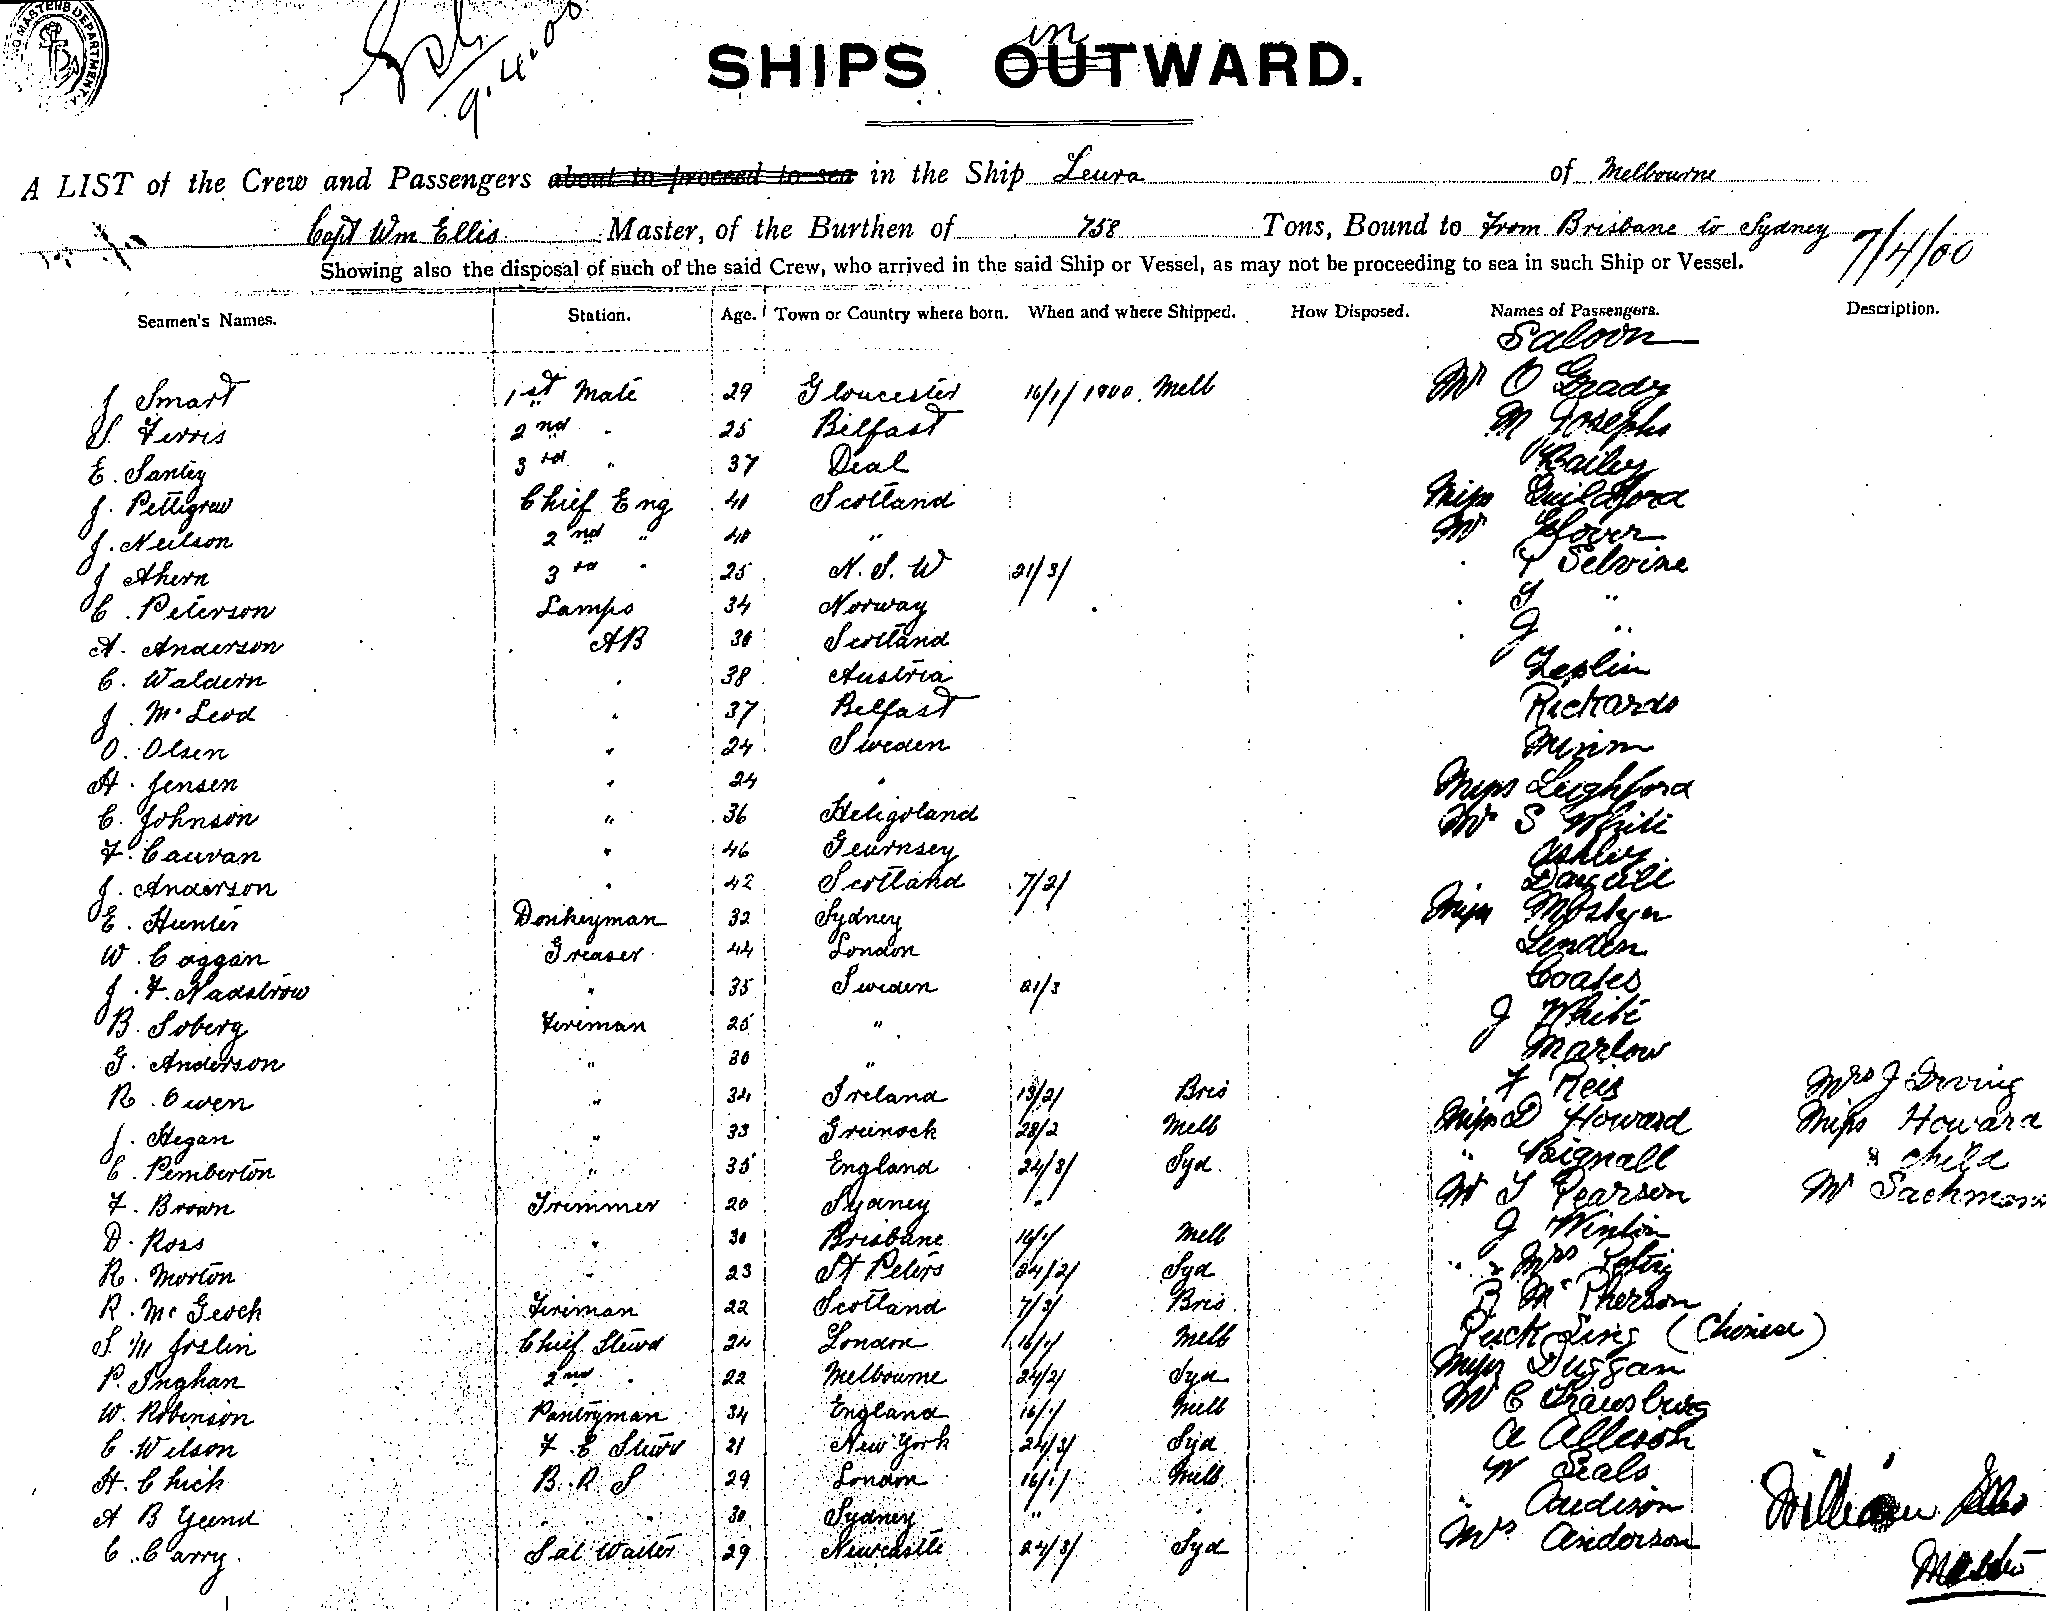 MASTERS DEPARTMENT
9.4.00
in
SHIPS OUTWARD.
A LIST of the Crew and Passengers about to proceed to sea in the Ship Leura of Melbourne
Capt Wm Ellis Master, of the Burthen of 758 Tons, Bound to From Brisbane to Sydney 7/4/00
Showing also the disposal of such of the said Crew, who arrived in the said Ship or Vessel, as may not be proceeding to sea in such Ship or Vessel.
Seamen's Names. Station. Age. Town or Country where born. When and where Shipped. How Disposed. Names of Passengers. Description.
Saloon
J Smart 1st Mate 29 Gloucester 16/1/1900. Melb Mr O Grady
S. Ferris 2nd " 25 Belfast M Josephs
E. Santey 3rd " 37 Deal Bailey
J. Pettigrew Chief Eng 41 Scotland Miss Guildford
J. Neilson 2nd " 40 " Mr Glover
J Ahern 3rd " 25 N. S. W 21/3/ Selvine
C. Peterson Lamps 34 Norway "
A. Anderson AB 30 Scotland J "
C. Waldern " 38 Austria Leplin
J. McLeod " 37 Belfast Rickards
O. Olsen " 24 Sweden
H. Jensen " 24 " Miss Leighford
C. Johnson " 36 Heligoland Mr S White
F. Cauvan " 46 Geurnsey Ashley
J. Anderson " 42 Scotland 7/2/
E. Hunter Donkeyman 32 Sydney Miss Mostyn
W. Coggan Greaser 44 London Linden
J. F. Nadstrow " 35 Sweden 21/3 Coates
B. Soberg Fireman 25 " J White
G. Anderson " 30 " Marlow
R. Owen " 34 Ireland 13/2/ Bris F Reis Mrs J Irving
J. Hegan " 33 Greinock 28/2 Melb Miss D Howard Miss Howard
C. Pemberton " 35 England 24/3/ Syd. " Bignall " child
F. Brown Trimmer 20 Sydney " Mr T Pearson Mr Sachmann
D. Ross " 30 Brisbane 16/1/ Melb J Winton
R. Morton " 23 St Peters 24/2/ Syd " Mrs
R. McGeoch Fireman 22 Scotland 7/3/ Bris. R McPherson
S. M Joslin Chief Stewd 24 London 16/1/ Melb Puck Ling (Chinese)
P. Inghan 2nd " 22 Melbourne 24/2/ Syd Miss Duggan
W. Robinson Pantryman 34 England 16/1/ Melb Mr C
C. Wilson F. C Stewd 21 New York 24/3/ Syd A Allison
H. Chick B. R S 29 London 16/1/ Melb W Seals
A B Yeend " " " 30 Sydney " " " Audison William Ellis
C. Carry. Sal Waiter 29 Newcastle 24/3/ Syd Mrs Anderson
Master